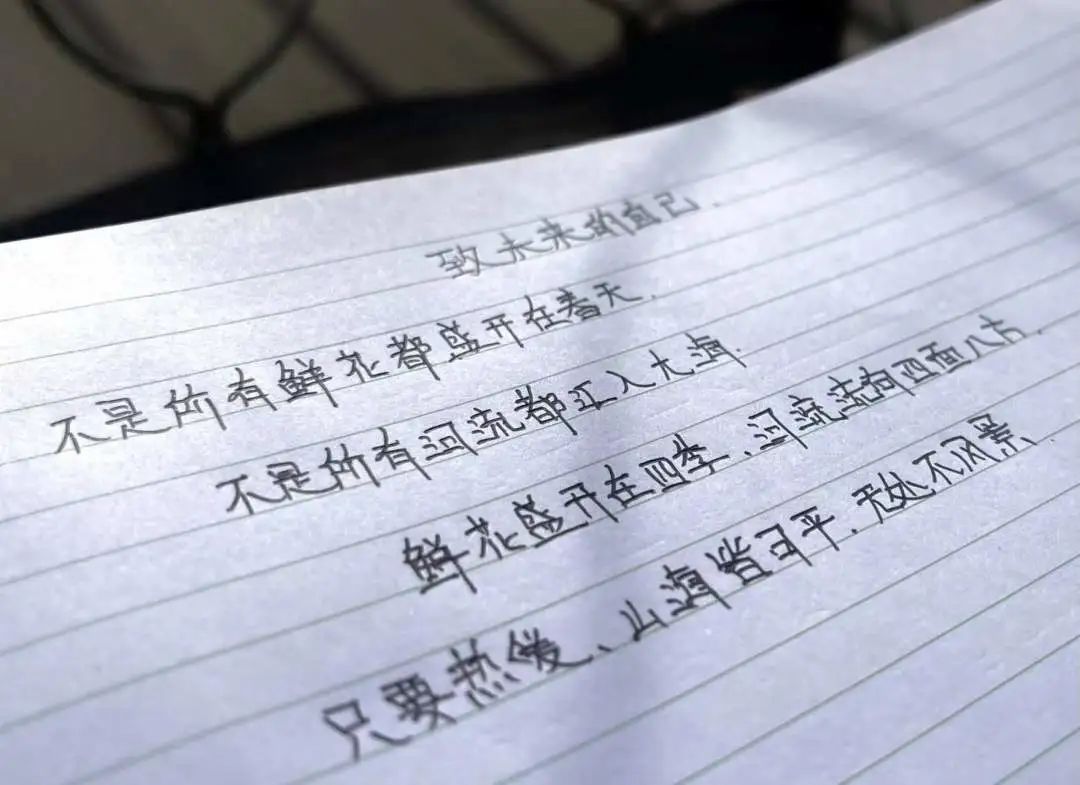 致未来的自己.
不是所有鲜花都盛开在春天.
不是所有河流都汇入大海.
鲜花盛开在四季、河流流向四面八方.
只要热爱、山海皆可平.无处不风景.